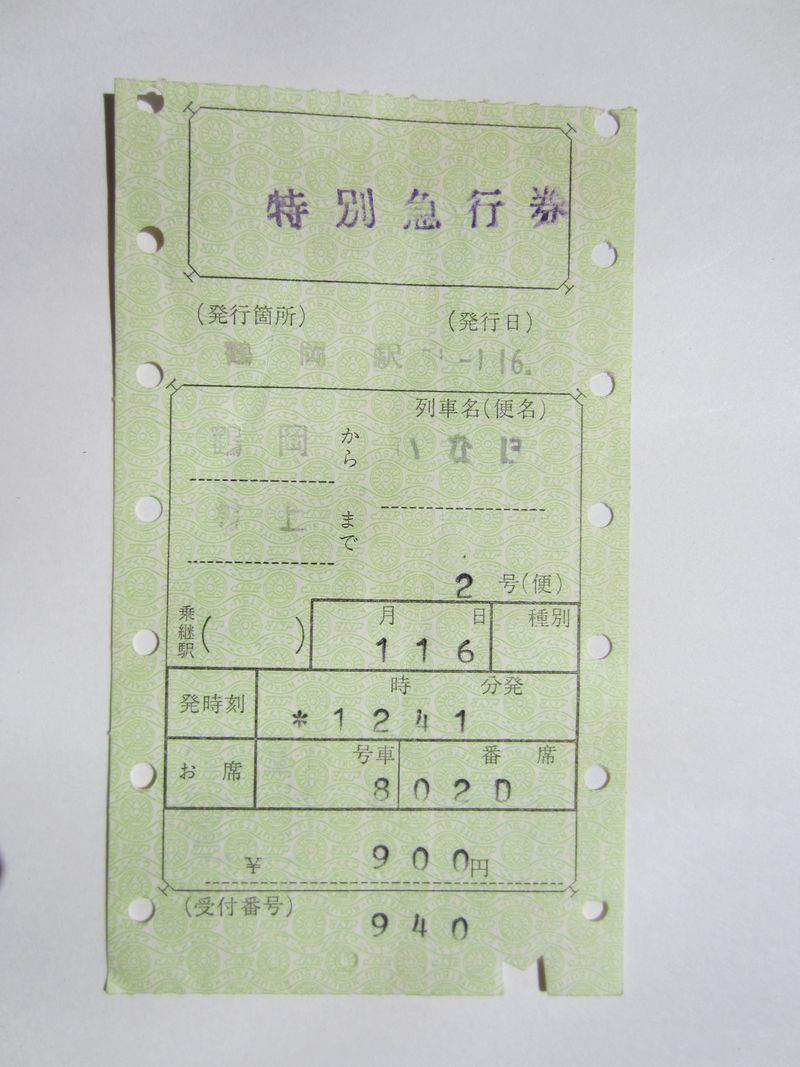 特別急行券
(発行箇所) (発行日)
鶴岡駅 -116.
列車名(便名)
鶴岡 から いなほ
上 まで
2 号(便)
乗継駅( ) 月 日 種別
116
発時刻 時 分発
*1241
お席 号車 番 席
8 02D
¥ 900円
(受付番号)
940